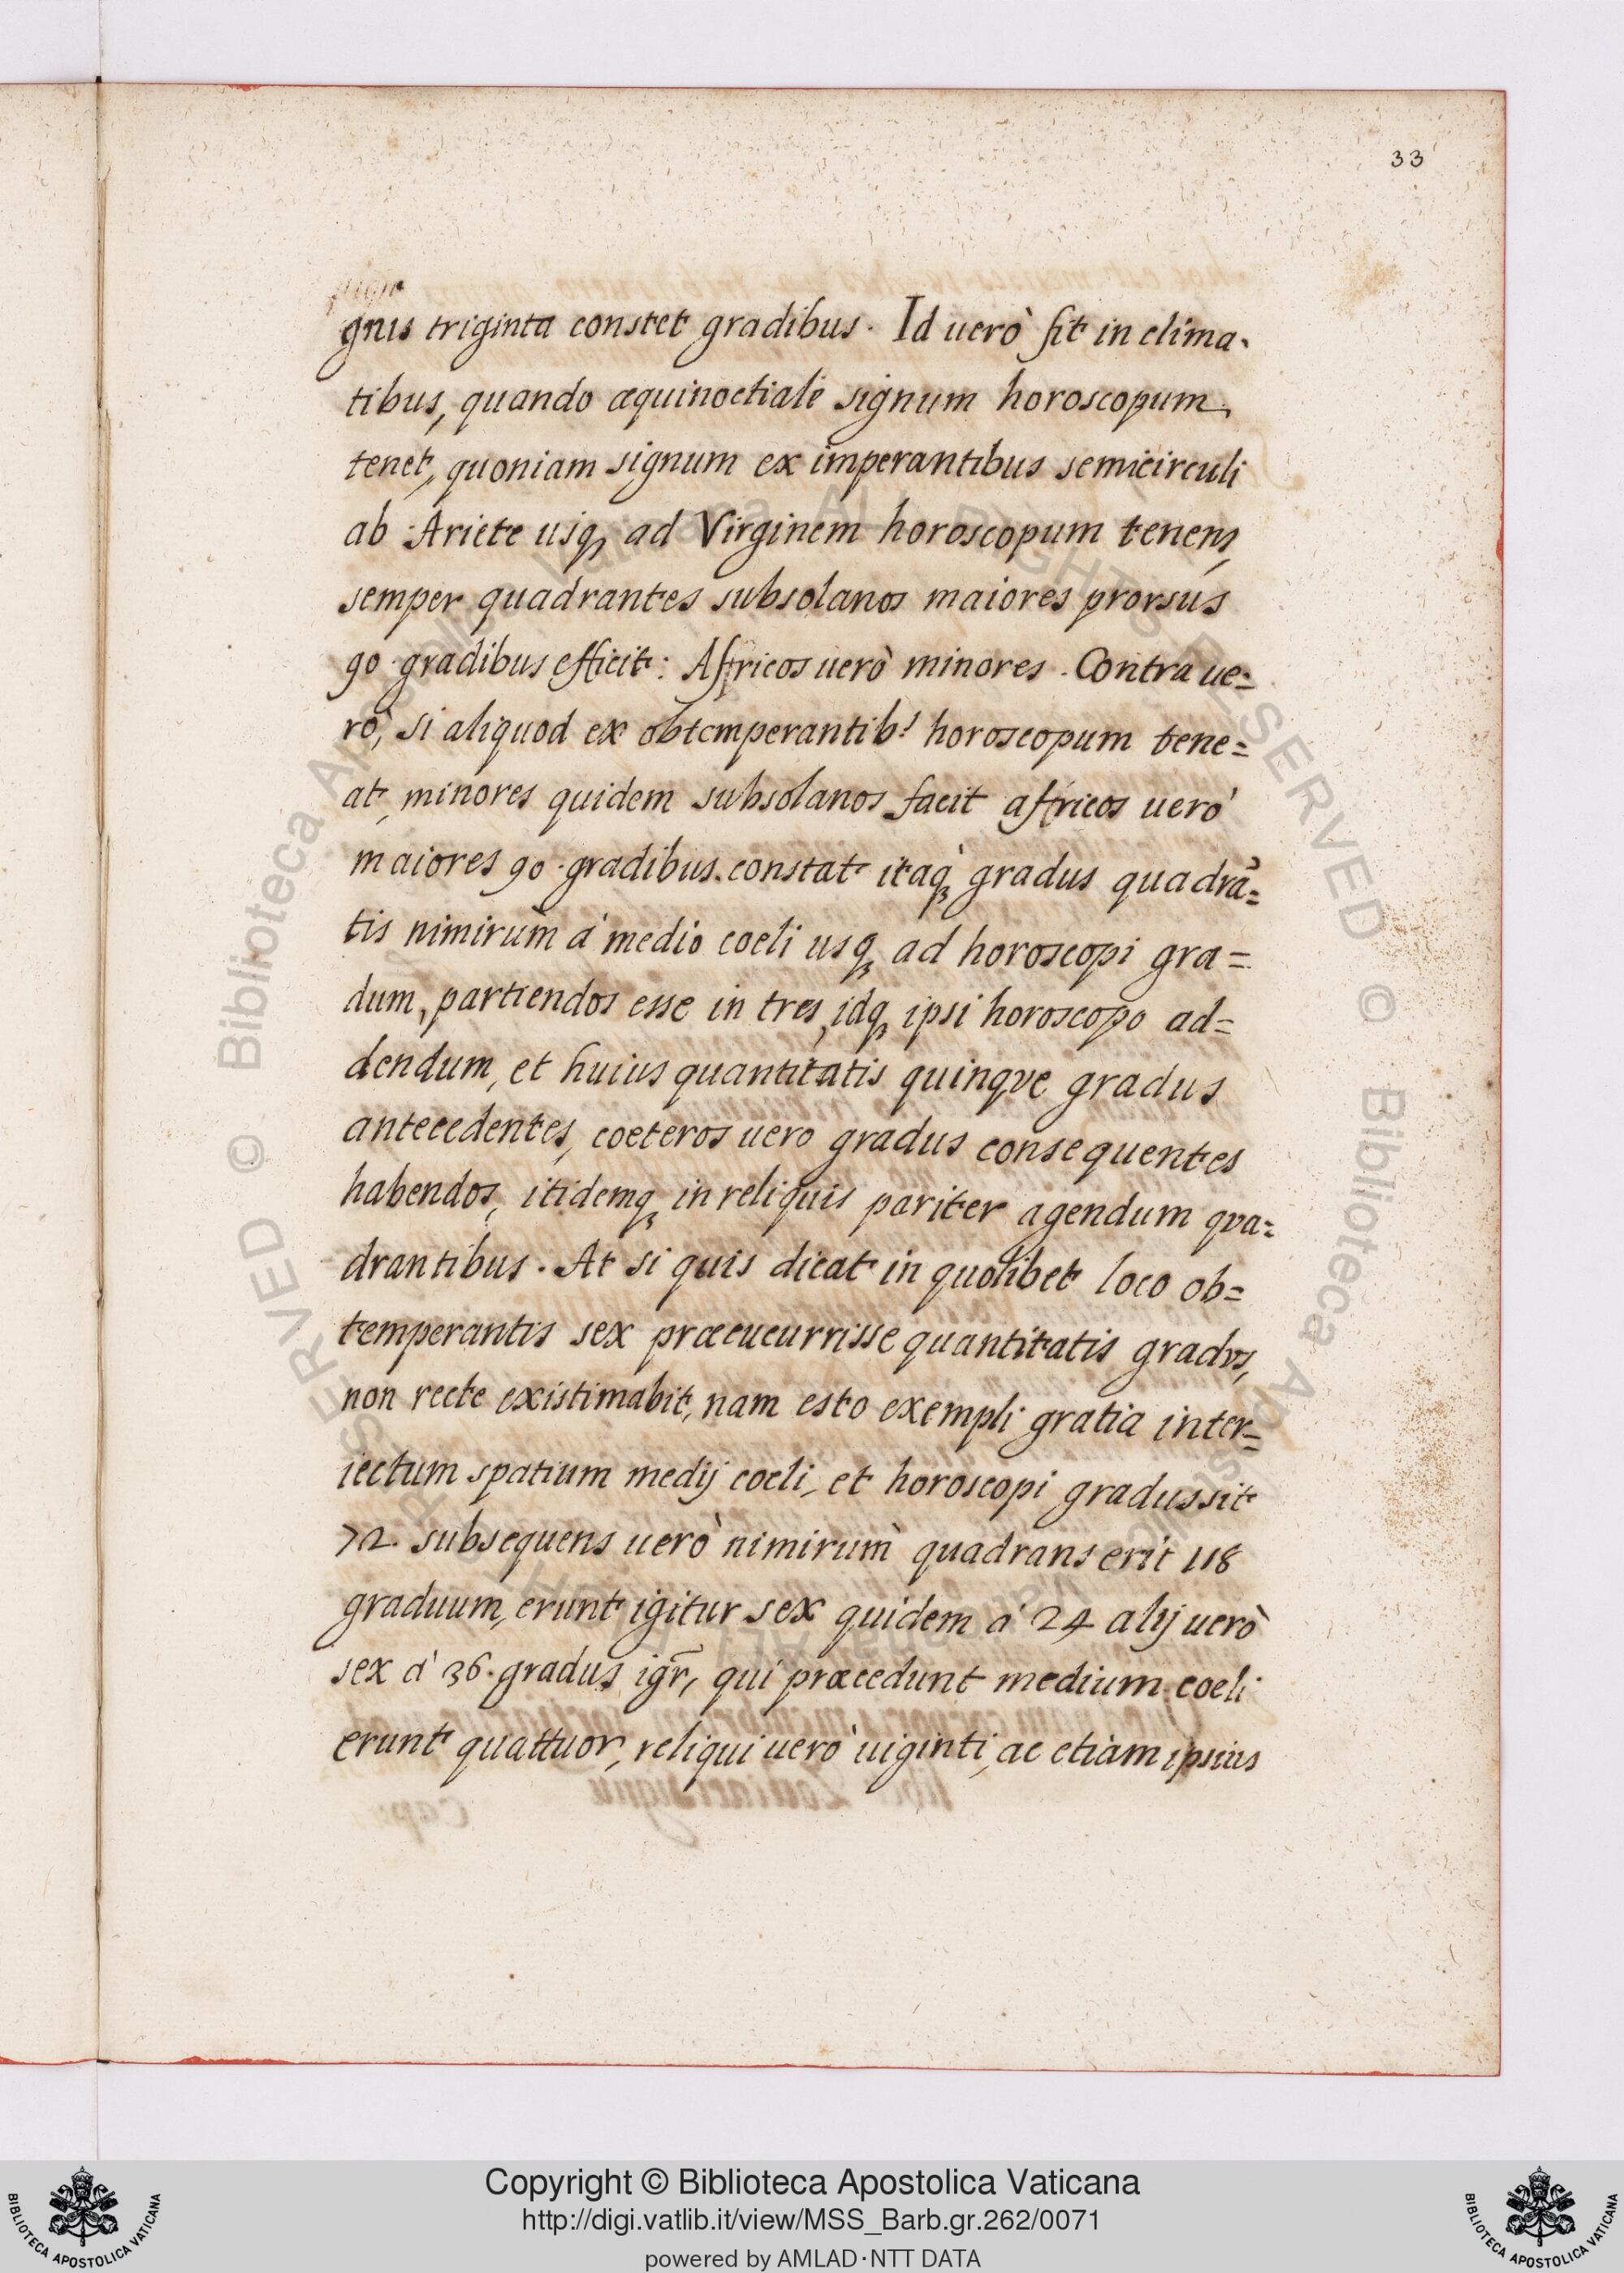 33
gnis triginta constet gradibus. Id uerò fit in clima-
tibus, quando æquinoctiale signum horoscopum
tenet, quoniam signum ex imperantibus semicirculi
ab Ariete usq, ad Virginem horoscopum tenens,
semper quadrantes subsolanos maiores prorsus
90 gradibus efficit: Africos uerò minores. Contra ue=
rò, si aliquod ex obtemperantib's horoscopum tene=
at, minores quidem subsolanos facit africos uerò
maiores 90 gradibus. constat itaq, gradus quadrā=
tis nimirum à medio coeli usq, ad horoscopi gra=
dum, partiendos esse in tres, idq, ipsi horoscopo ad=
dendum, et huius quantitatis quinqve gradus
antecedentes, coeteros uero gradus consequentes
habendos, itidemq, in reliquis pariter agendum qva=
drantibus. At si quis dicat in quolibet loco ob=
temperantis sex præcucurrisse quantitatis gradvs,
non recte existimabit, nam esto exempli gratia inter=
iectum spatium medij coeli, et horoscopi gradus sit
72. subsequens uerò nimirum quadrans erit 118
graduum, erunt igitur sex quidem à 24 alij uerò
sex à 36. gradus igr̄, qui præcedunt medium coeli
erunt quattuor, reliqui uerò uiginti, ac etiam ipsius
© Biblioteca Apostolica Vaticana ALL RIGHTS RESERVED
© Biblioteca Apostolica Vaticana ALL RIGHTS RESERVED
Copyright © Biblioteca Apostolica Vaticana
http://digi.vatlib.it/view/MSS_Barb.gr.262/0071
powered by AMLAD·NTT DATA
BIBLIOTECA APOSTOLICA VATICANA
BIBLIOTECA APOSTOLICA VATICANA